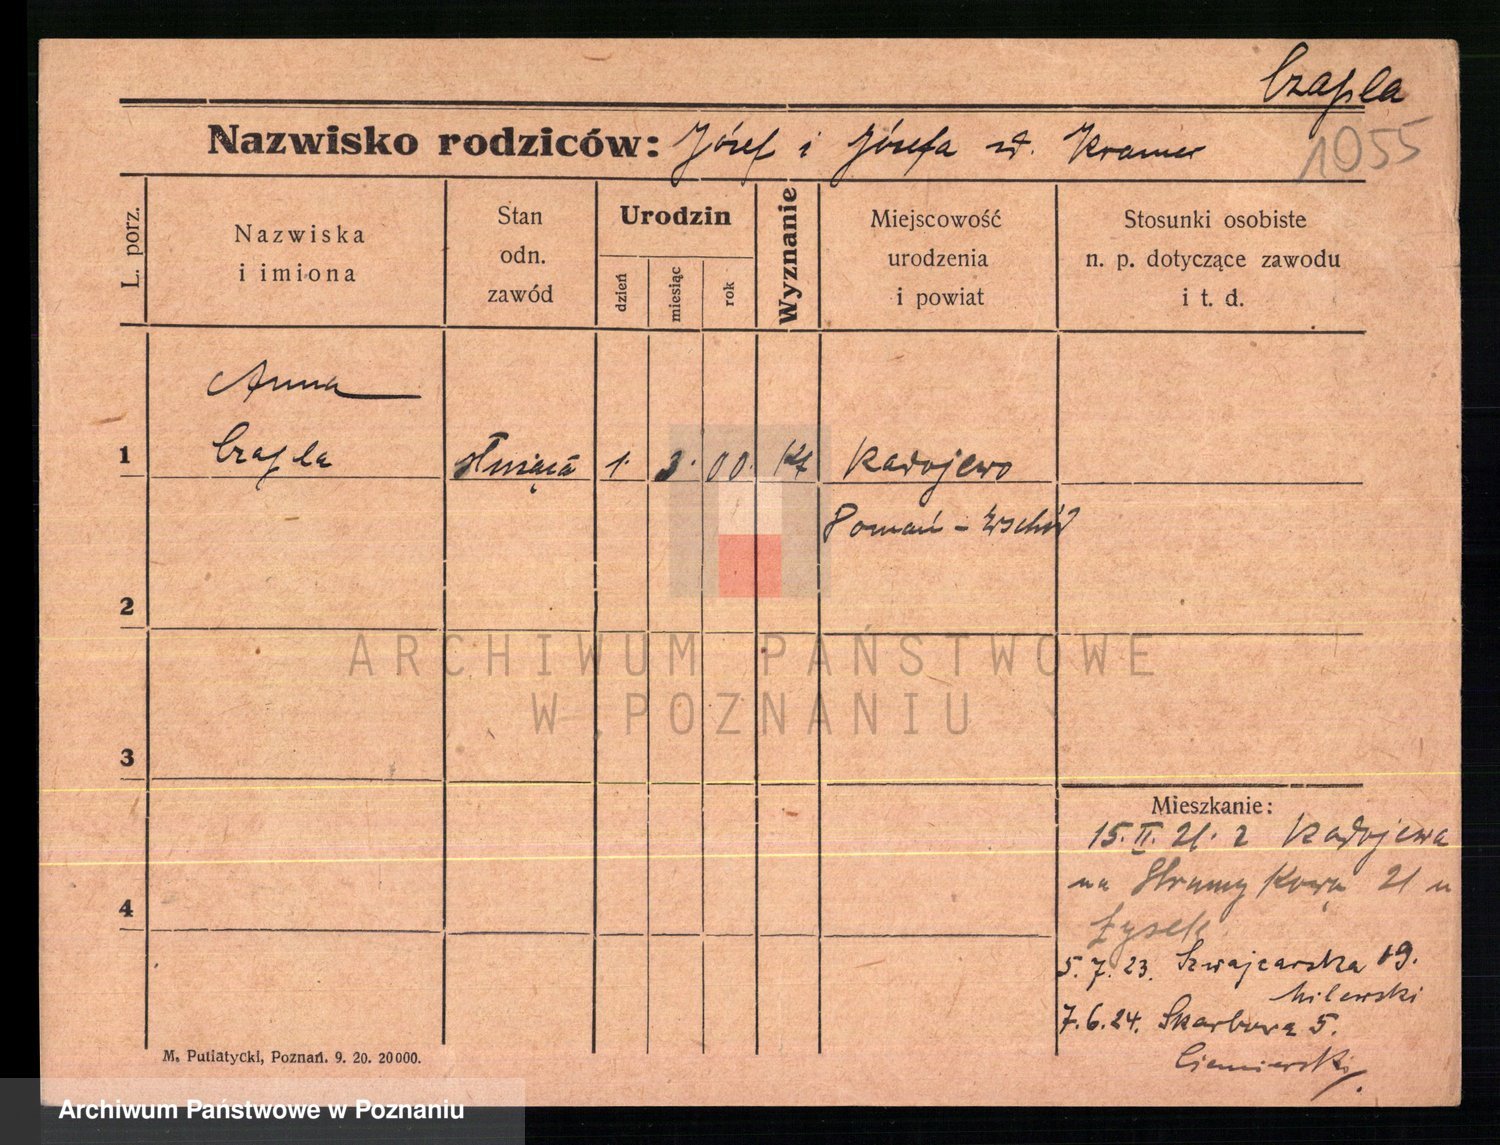 Czapla
Nazwisko rodziców: Józef i Józefa zd. Kramer
1055
L. porz.
Nazwiska
i imiona
Stan
odn.
zawód
Urodzin
dzień
miesiąc
rok
Wyznanie
Miejscowość
urodzenia
i powiat
Stosunki osobiste
n. p. dotyczące zawodu
i t. d.
Anna
1 Czapla służąca 1. 3. 00. Kt Radojewo
Poznań - Wschód
2
ARCHIWUM PAŃSTWOWE
W POZNANIU
3
Mieszkanie:
15.II.21. z Radojewa
na Strumykową 21 u
Łysek
4
5.7.23. Szwajcarska 19.
Milewski
7.6.24. Skarbowa 5.
Ciemierski
M. Putiatycki, Poznań. 9. 20. 20000.
Archiwum Państwowe w Poznaniu